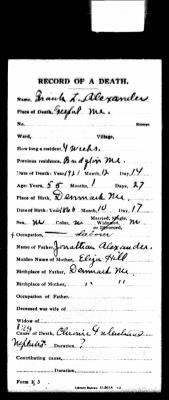 RECORD OF A DEATH.
Name, Frank L. Alexander
Place of Death, Me.
No. Street
Ward, Village,
How long a resident, 4 weeks.
Previous residence, Me.
Date of Death: Year, 1921 Month, 12 Day, 14
Age: Years, 55 Months, 1 Days, 27
Place of Birth, Denmark Me.
Date of Birth: Year, 1866 Month, 10 Day, 17
Sex, M Color, Married, Single, Widowed, or Divorced, M
Occupation, Labour
Name of Father, Jonathan Alexander.
Maiden Name of Mother, Eliza Hill
Birthplace of Father, Denmark Me.
Birthplace of Mother, " "
Occupation of Father,
Deceased was wife of
Widow of
Cause of Death, Chronic Interstitial
Nephritis Duration, ?
Contributing cause,
Duration,
Form E 3